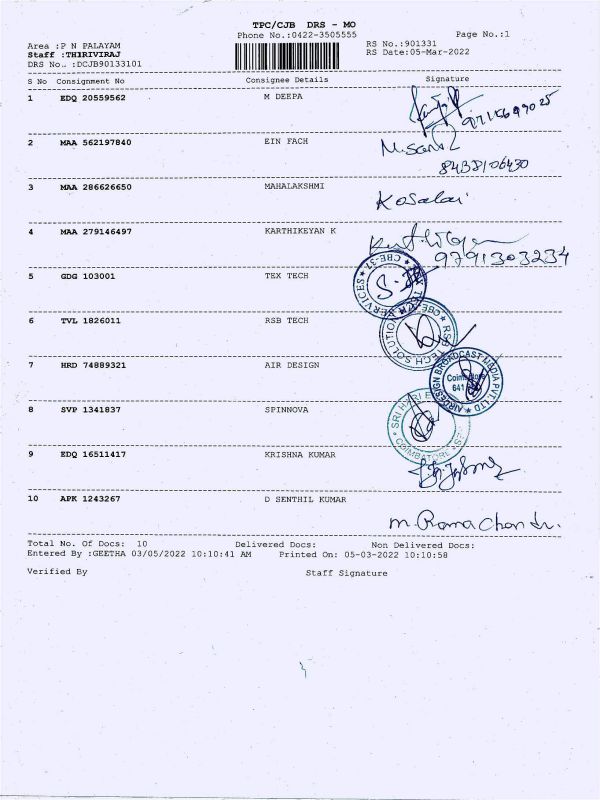 TPC/CJB DRS - MO
Phone No.:0422-3505555
Page No.:1
Area :P N PALAYAM
RS No.:901331
Staff :THIRIVIRAJ
RS Date:05-Mar-2022
DRS No.. :DCJB90133101
S No Consignment No Consignee Details Signature
1 EDQ 20559562 M DEEPA
2 MAA 562197840 EIN FACH
8438106430
3 MAA 286626650 MAHALAKSHMI
Kosalai
4 MAA 279146497 KARTHIKEYAN K
9791303234
5 GDG 103001 TEX TECH
6 TVL 1826011 RSB TECH
7 HRD 74889321 AIR DESIGN
8 SVP 1341837 SPINNOVA
9 EDQ 16511417 KRISHNA KUMAR
10 APK 1243267 D SENTHIL KUMAR
M. Rama Chandr.
Total No. Of Docs: 10 Delivered Docs: Non Delivered Docs:
Entered By :GEETHA 03/05/2022 10:10:41 AM Printed On: 05-03-2022 10:10:58
Verified By Staff Signature